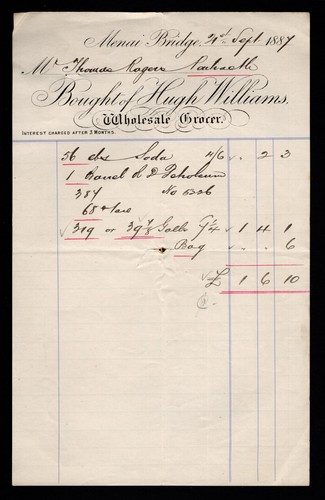 Menai Bridge, 21st Sept 1887
Mr Thomas Rogers
Bought of Hugh Williams,
Wholesale Grocer.
INTEREST CHARGED AFTER 3 MONTHS.
56 lbs Soda 4/6 2 3
1 Barrel R D Petroleum
387 No 5326
68 tare
319 or 39 7/8 Galls 7 1/4 1 4 1
Bag 6
£ 1 6 10